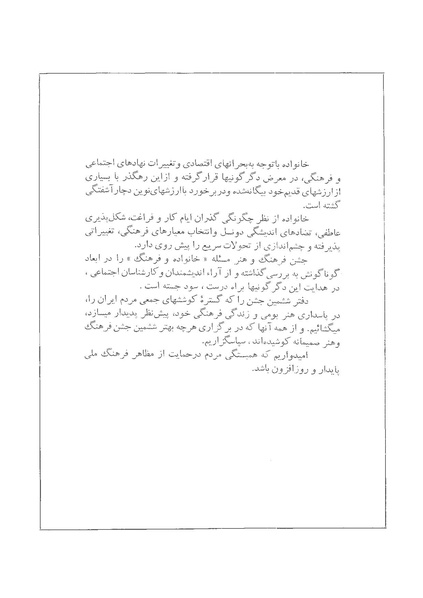 خانواده با توجه به بحرانهای اقتصادی و تغییرات نهادهای اجتماعی
و فرهنگی، در معرض دگرگونیها قرار گرفته و از این رهگذر با بسیاری
از ارزشهای قدیم خود بیگانه شده و در برخورد با ارزشهای نوین دچار آشفتگی
گشته است.
خانواده از نظر چگونگی گذران ایام کار و فراغت، شکل‌پذیری
عاطفی، تضادهای اندیشگی دو نسل و انتخاب معیارهای فرهنگی، تغییراتی
پذیرفته و چشم‌اندازی از تحولات سریع را پیش روی دارد.
جشن فرهنگ و هنر مسئله « خانواده و فرهنگ » را در ابعاد
گوناگونش به بررسی گذاشته و از آراء اندیشمندان و کارشناسان اجتماعی ،
در هدایت این دگرگونیها براه درست ، سود جسته است .
دفتر ششمین جشن را که گسترهٔ کوششهای جمعی مردم ایران را،
در پاسداری هنر بومی و زندگی فرهنگی خود، پیش نظر پدیدار میسازد،
میگشائیم. و از همه آنها که در برگزاری هرچه بهتر ششمین جشن فرهنگ
و هنر صمیمانه کوشیده‌اند ، سپاسگزاریم.
امیدواریم که همبستگی مردم در حمایت از مظاهر فرهنگ ملی
پایدار و روزافزون باشد.